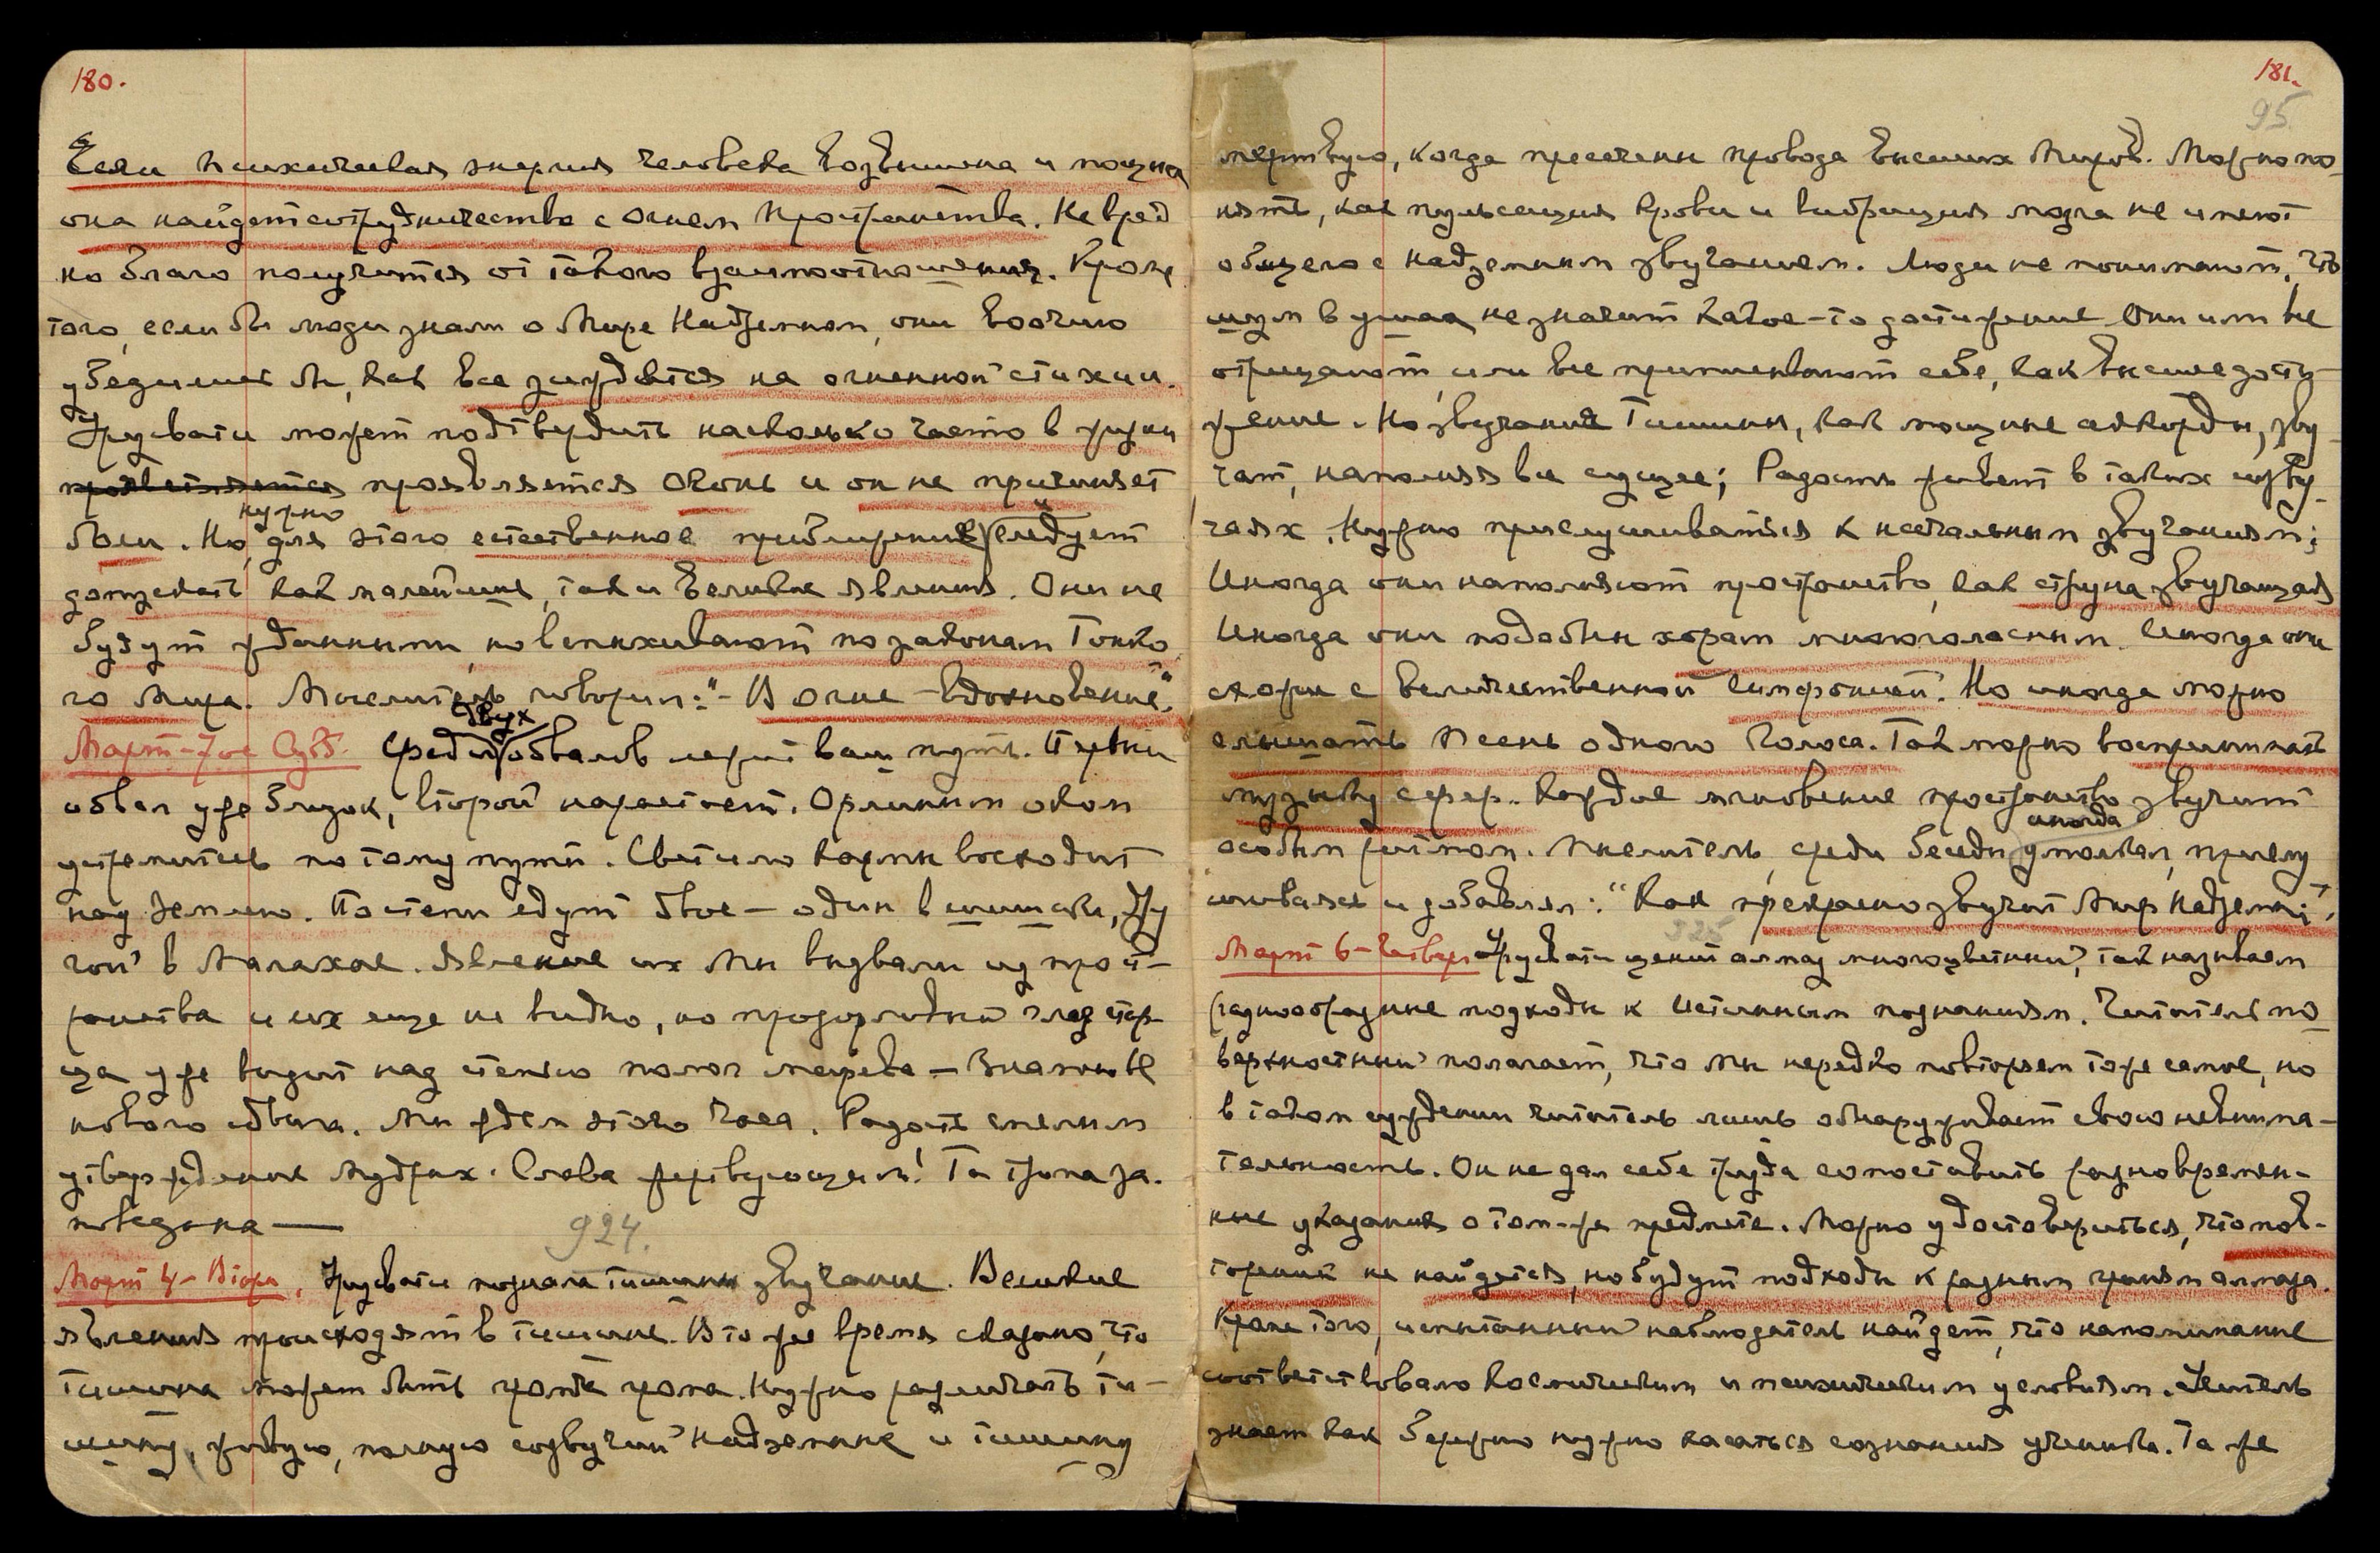 180.
Если психическая энергия человека возвышена и мощна
она найдет сотрудничество с огнем Пространства. Не вред
но благо получится от такого взаимоотношения. Кроме
того, если бы люди знали о Мире Надземном, они воочию
убедились бы, как все зиждется на огненной стихии.
Урусвати может подтвердить насколько часто в жизни
проявляется Огонь и он не причиняет
нужно
боли. Но для этого естественное приближение следует
допускать как малейшие, так и великие явления. Они не
будут жданными, но вспыхивают по законам Тонко
го мира. Мыслитель говорил: "- В огне - вдохновение".
двух
Март - 7ое Субб. Среди обвалов лежит ваш путь. Первый
обвал уже близок, второй нарастает. Орлиным оком
устремитесь по тому пути. Светило Кармы восходит
над Землею. По степи едут двое - один в шишаке, дру
гой в Малахае. Явление их Мы вызвали из прост-
ранства и их еще не видно, но прозорливый глаз стар-
ца уже видит над степью полог марева - Знамение
нового сдвига. Мы ждем этого часа. Радость смелым
утверждение Мудрых. Слава жертвующим! Та тропа за-
поведана —
924.
Март 4 - Вторн. Урусвати познала тишины звучание. Великие
явления происходят в тишине. В то же время сказано, что
тишина может быть громче грома. Нужно различать ти-
шину, живую, полную созвучий Надземных и тишину
181.
95
мертвую, когда пресечены провода высших Миров. Можно по-
нять, как пульсация крови и вибрация мозга не имеют
общего с надземным звучанием. Люди не понимают, что
шум в ушах не значит какое-то достижение. Они или все
отрицают, или все приписывают себе, как высшее дости-
жение. Но звучание Тишины, как мощные аккорды, зву-
чат, наполняя все сущее; Радость живет в таких созву-
чаях. Нужно прислушиваться к несказанным звучаниям;
Иногда они наполняют пространство, как струна звучащая
Иногда они подобны хорам многогласным. Иногда они
схожи с величественной Симфонией. Но иногда можно
слышать песнь одного Голоса. Так можно воспринимать
музыку сфер. Каждое мгновение пространство звучит
иногда
особым ритмом. Мыслитель, среди беседы умолкал, прислу
шивался и добавлял: "Как прекрасно звучит Мир Надземный",
925
Март 6 - Четверг Урусвати ценит алмаз многоцветный, так называем
разнообразные подходы к Истинным познаниям. Читатель по-
верхностный полагает, что Мы нередко повторяем то же самое, но
в таком суждении читатель лишь обнаруживает свою невнима-
тельность. Он не дал себе труда сопоставить разновремен-
ные указания о том-же предмете. Можно удостовериться, что пов-
торений не найдется, но будут подходы к разным граням алмаза.
Кроме того, испытанный наблюдатель найдет, что напоминание
соответствовало космическим и психическим условиям. Учитель
знает как бережно нужно касаться сознания ученика. Та же